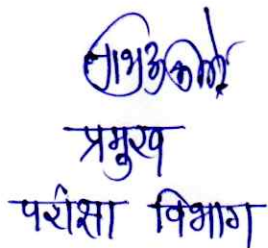 प्रमुख
परीक्षा विभाग